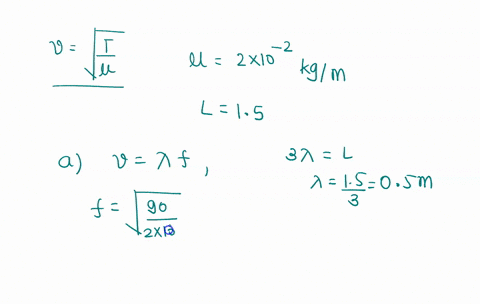 v = √(T/μ)
μ = 2×10⁻² kg/m
L = 1.5
a) v = λ f ,
3λ = L
λ = 1.5/3 = 0.5 m
f = √(90/2×10